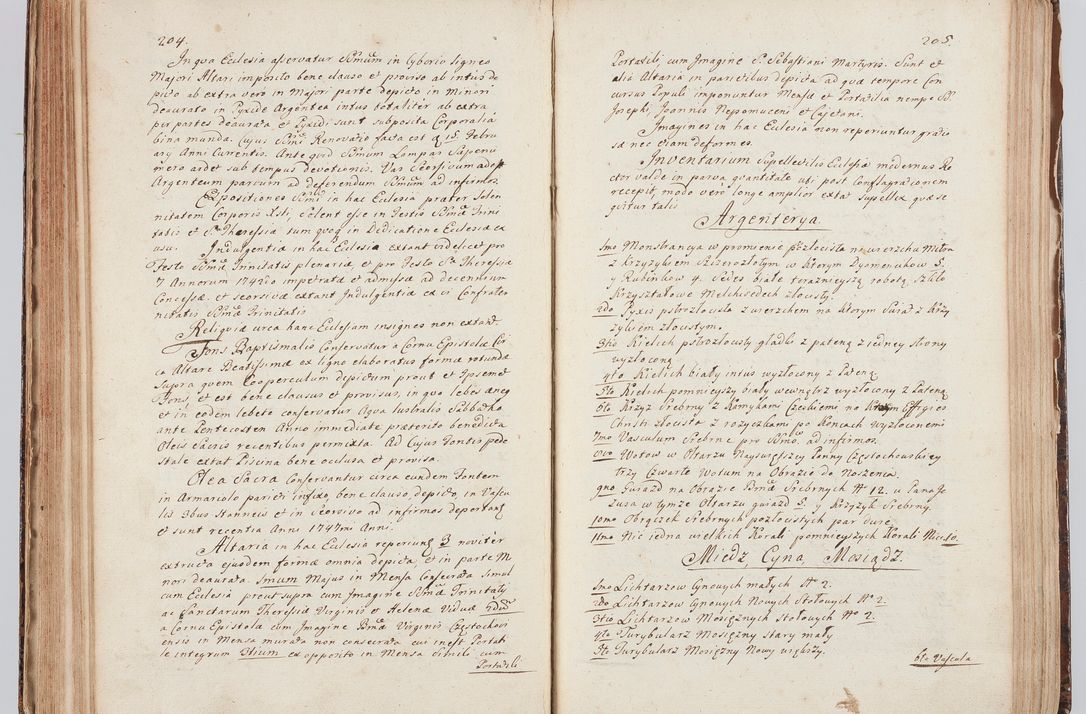 204.
In qua Eclesia aservatur SSmũ in Cyborio ligneo
Majori Altari imposito bene clauso et proviso ab intus de
picto ab extra vero in Majori parte depicto in Minori
deaurato in Pyxide Argentea intus totaliter ab extra
per partes deaurata et Pyxidi sunt subposita Corporalia
bina munda. Cujus SSmi Renovatio facta est d. 15. Febru
ary Anni Curentis. Ante quod SSmum Lampas Sapenu
mero ardet sub tempus devotionis. Vas Seorsivum adest
Argenteum parvum ad deferendum SSmum ad infirmos.
Expositiones SSmi in hac Eclesia præter Solen
nitatem Corporis Xsti, Solent esse in Festis SSmæ Trini
tatis et Stæ Theressiæ tum quoq in Dedicatione Eclesiæ ex
usu. Indulgentiæ in hac Eclesia extant videlicet pro
Festo SSmæ Trinitatis plenariæ, et pro Festo Stæ Theressiæ
7 Annorum 1742do impetratæ et admissæ ad decennium
Concessæ, et seorsivæ extant Indulgentiæ ex vi Confrater
nitatis SSmæ Trinitatis
Reliquiæ circa hanc Eclesiam insignes non extant.
Fons Baptismalis Conservatur a Cornu Epistolæ Cir
ca Altare Beatissimæ ex ligno elaboratus formæ rotundæ
Supra quem Cooperculum depictum prout et Ipsemet
Fons, et est bene clausus et provisus, in quo lebes æneg
et in eodem lebete conservatur Aqua lustralis Sabbatho
ante Pentecosten Anno immediate præterito benedicta
Oleis Sacris recentibus permixta. Ad Cujus Fontis pede
stale extat Piscina bene occlusa et provisa.
Olea Sacra Conservantur circa eundem Fontem
in Armariolo parieti infixo, bene clauso, depicto, in Vascu
lis 3bus Stanneis et in Seorsivo ad infirmos deportang
et sunt recentia Anni 1747mi Anni.
Altaria in hac Eclesia reperiung 3 noviter
extructa ejusdem formæ omnia depicta, et in parte Mi
nori deaurata. 1mum Majus in Mensa Consecrata Simul
cum Eclesia prout supra cum Imagine SSmæ Trinitaty
ac Sanctarum Theressiæ Virginis et Helenæ Viduæ 2dum
a Cornu Epistola cum Imagine Bmæ Virginis Częstochovi
ensis in Mensa murata non consecrata cui inest Portati
le integrum 3tium ex opposito in Mensa Simili cum
Portatili
205.
Portatili, cum Imagine S. Sebastiani Martyris. Sunt et
alia Altaria in parietibus depicta ad quæ tempore Con
cursus Populi imponuntur Mensæ et Portatilia nempe SS.
Josephi, Joannis Nepomuceni et Cajetani.
Imagines in hac Eclesia non reperiuntur gratio
sæ nec etiam deformes.
Inventarium Supellectilis Eclesiæ modernus Re
ctor valde in parva quantitate uti post Conflagrationem
recepit, modo vero longe amplior extat Supellex quæ se
quitur talis
Argenterya.
1mo Monstrancya w promienie pozłocista na wierzchu Mitra
z krzyżykiem Szczerozłotym w którym Dyamencikow 5.
y Rubinkow 4. Sedes białe teraznieyszą robotą Szkło
Krzyształowe Melchisedech złocisty.
2do Pyxis pstrozłocista z wierzchem na ktorym Swiat z krzy
żykiem złocistym.
3tio Kielich pstrozłocisty gładki z pateną z iedney strony
wyzłoconą
4to Kielich biały intus wyzłocony z Pateną
5to Kielich pomnieyszy biały wewnątrz wyzłocony z Pateną
6to Krzyż Srebrny z Kamykami Czeskiemi na Effigies
Christi złocista z rożyczkami po Koncach wyzłoconemi
7mo Vasculum Srebrne pro SSmo. ad infirmos.
8vo Wotow w Ołtarzu Nayswiętszey Panny Częstochowskiey
trzy Czwarte Wotum na Obrazie do Noszenia.
9no Gwiazd na Obrazie Bmæ Srebrnych No 12. u Pana Je
zusa w tymże Ołtarzu gwiazd 5. y Krzyżyk Srebrny.
10mo Obrączek Srebrnych pozłocistych par dwie
11mo Nić iedna wielkich Korali pomnieyszych Korali Nici 10.
Miedz, Cyna, Mosiądz.
1mo Lichtarzow Cynowych małych No 2.
2do Lichtarzow Cynowych Nowych Stołowych No 2.
3tio Lichtarzow Mosięznych Stołowych No 2.
4to Turybularz Mosięzny stary mały
5to Turybularz Mosięzny Nowy większy.
6to Vascula